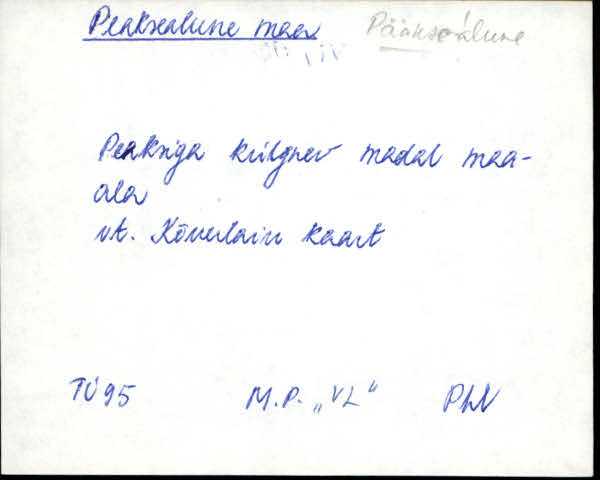 Peaksealune maa Pääksealune
Peaksiga külgnev madal maa-
ala
vt. Kõverlaiu kaart
TÜ 95 M.P. „VL" PhV